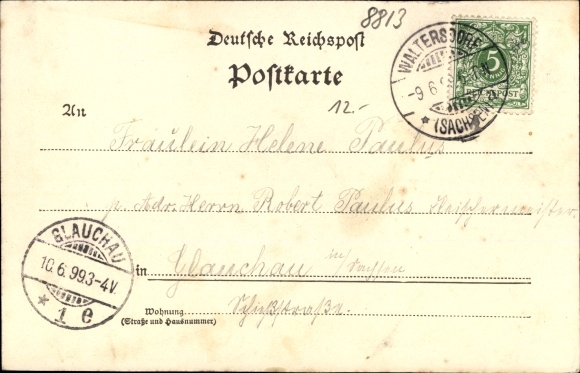 8813
Deutsche Reichspost
Postkarte
WALTERSDORF
-9 6
* (SACHSEN)
5
PFENNIG
REICHSPOST
12.-
An
Fräulein Helene Paulus
p. Adr. Herrn Robert Paulus Fleischermeister
GLAUCHAU
10.6.99.3-4V.
* 1 e
in Glauchau in/Sachsen
Wohnung
(Straße und Hausnummer)